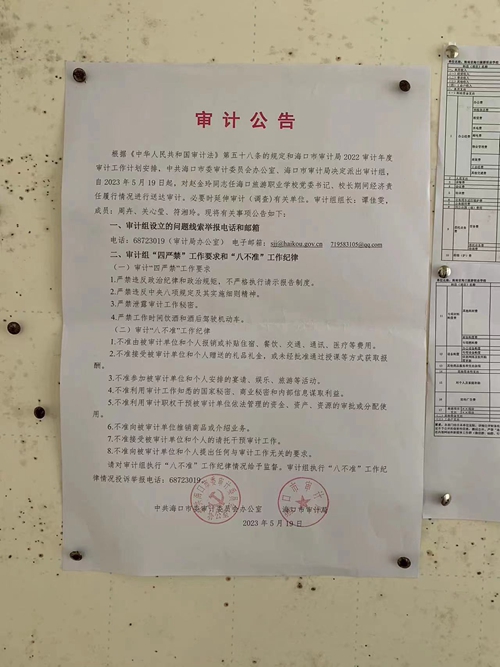 审计公告
根据《中华人民共和国审计法》第五十八条的规定和海口市审计局 2022 审计年度
审计工作计划安排，中共海口市委审计委员会办公室、海口市审计局决定派出审计组，
自 2023 年 5 月 19 日起，对赵金玲同志任海口旅游职业学校党委书记、校长期间经济责
任履行情况进行送达审计。必要时延伸审计（调查）有关单位。审计组组长：谭佳雯，
成员：周卉、关心莹、符湘玲。现将有关事项公告如下：
一、审计组设立的问题线索举报电话和邮箱
电话：68723019（审计局办公室） 电子邮箱：sjj@haikou.gov.cn 719583105@qq.com
二、审计组“四严禁”工作要求和“八不准”工作纪律
（一）审计“四严禁”工作要求
1.严禁违反政治纪律和政治规矩，不严格执行请示报告制度。
2.严禁违反中央八项规定及其实施细则精神。
3.严禁泄露审计工作秘密。
4.严禁工作时间饮酒和酒后驾驶机动车。
（二）审计“八不准”工作纪律
1.不准由被审计单位和个人报销或补贴住宿、餐饮、交通、通讯、医疗等费用。
2.不准接受被审计单位和个人赠送的礼品礼金，或未经批准通过授课等方式获取报
酬。
3.不准参加被审计单位和个人安排的宴请、娱乐、旅游等活动。
4.不准利用审计工作知悉的国家秘密、商业秘密和内部信息谋取利益。
5.不准利用审计职权干预被审计单位依法管理的资金、资产、资源的审批或分配使
用。
6.不准向被审计单位推销商品或介绍业务。
7.不准接受被审计单位和个人的请托干预审计工作。
8.不准向被审计单位和个人提出任何与审计工作无关的要求。
请对审计组执行“八不准”工作纪律情况给予监督。审计组执行“八不准”工作纪
律情况投诉举报电话：68723019。
中共海口市委审计委员会办公室 海口市审计局
2023 年 5 月 19 日